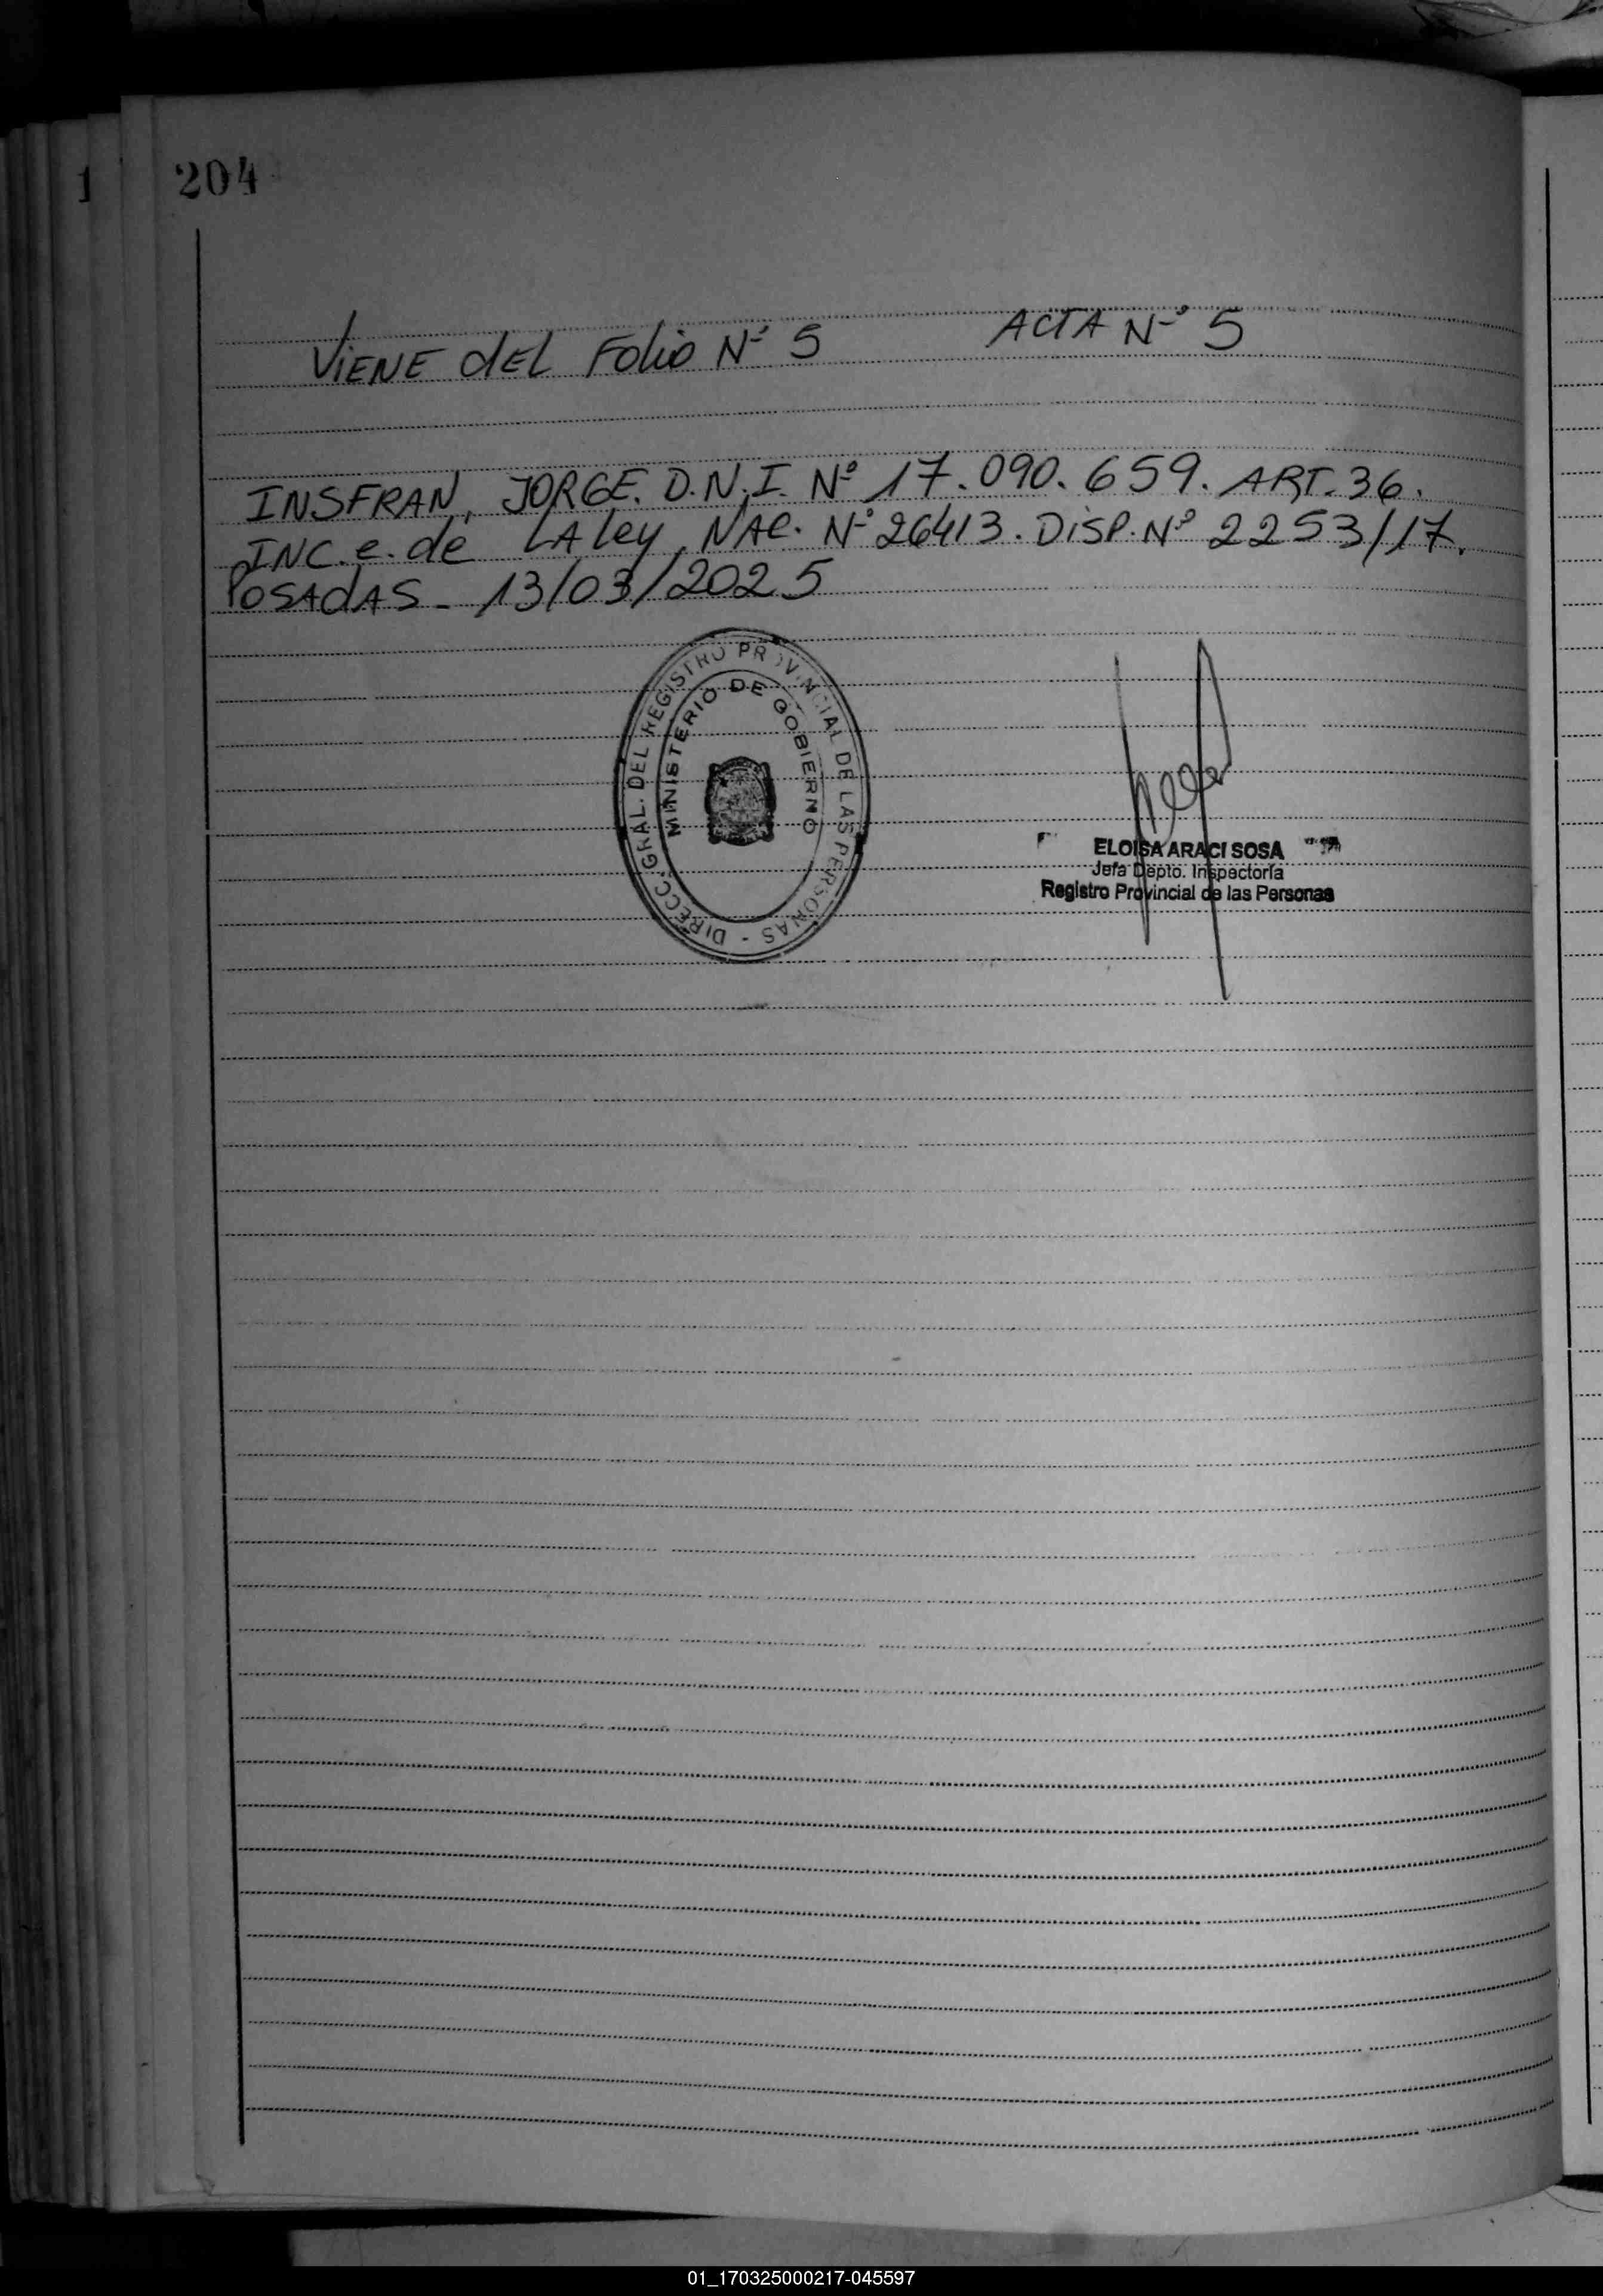 1
204
VIENE dEL Folio Nº 5 ACTA Nº 5
INSFRAN, JORGE. D.N.I. Nº 17.090.659. ART. 36.
INC. e. de LA ley, NAC. Nº 26413. DISP. Nº 2253/17.
POSAdAS - 13/03/2025
DIRECC. GRAL. DEL REGISTRO PROVINCIAL DE LAS PERSONAS -
MINISTERIO DE GOBIERNO
ELOISA ARACI SOSA
Jefa Depto. Inspectoría
Registro Provincial de las Personas
01_170325000217-045597